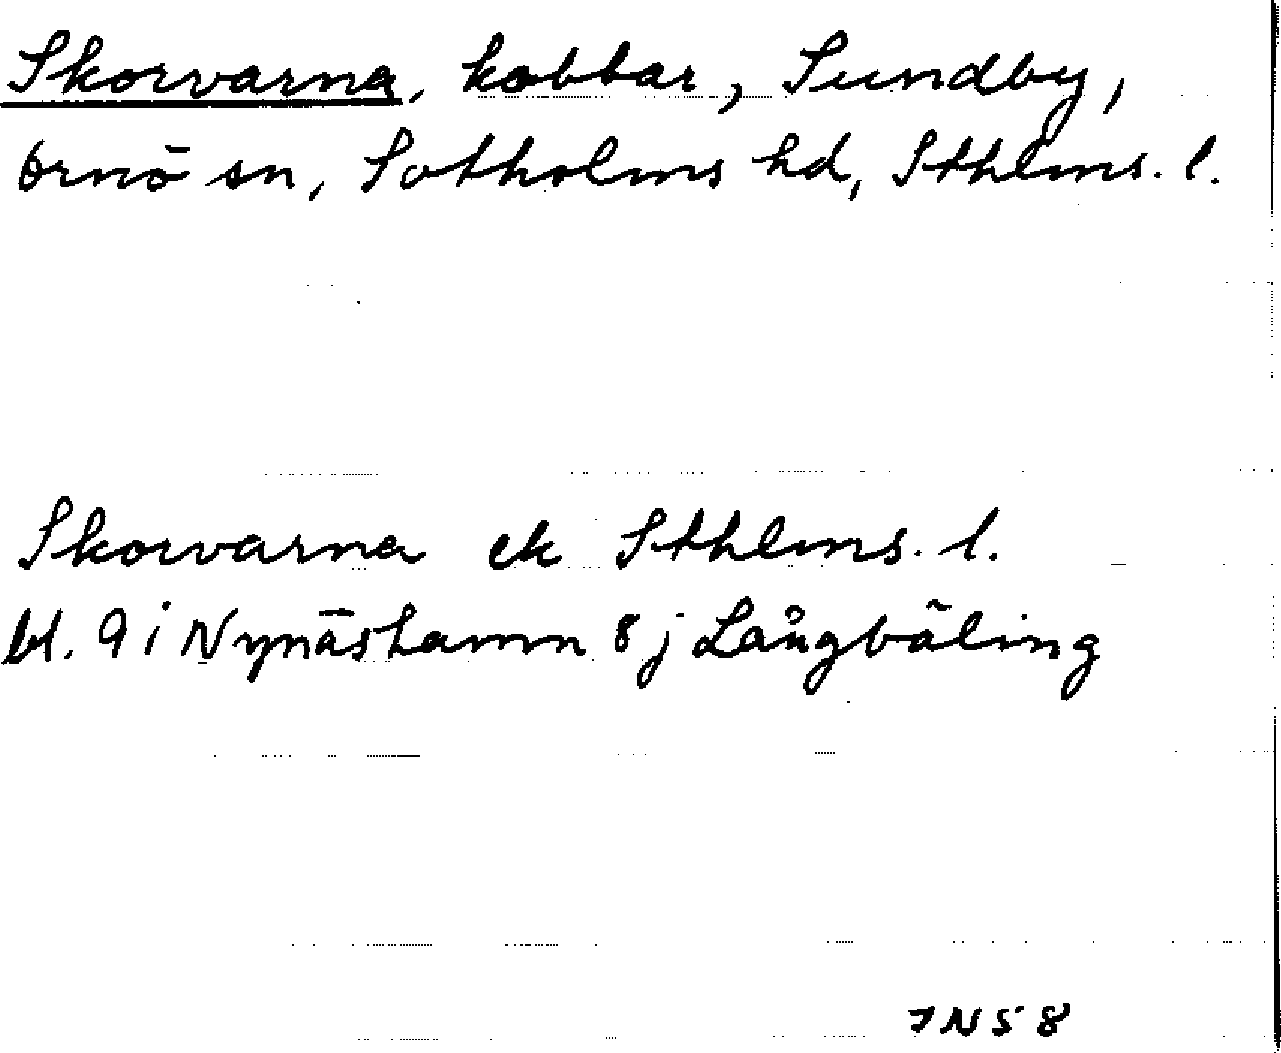 Skorvarna, kobbar, Sundby,
Ornö sn, Sotholms hd, Sthlms. l.
Skorvarna ek Sthlms. l.
bl. 9 i Nynäshamn 8 j Långbäling
7N58